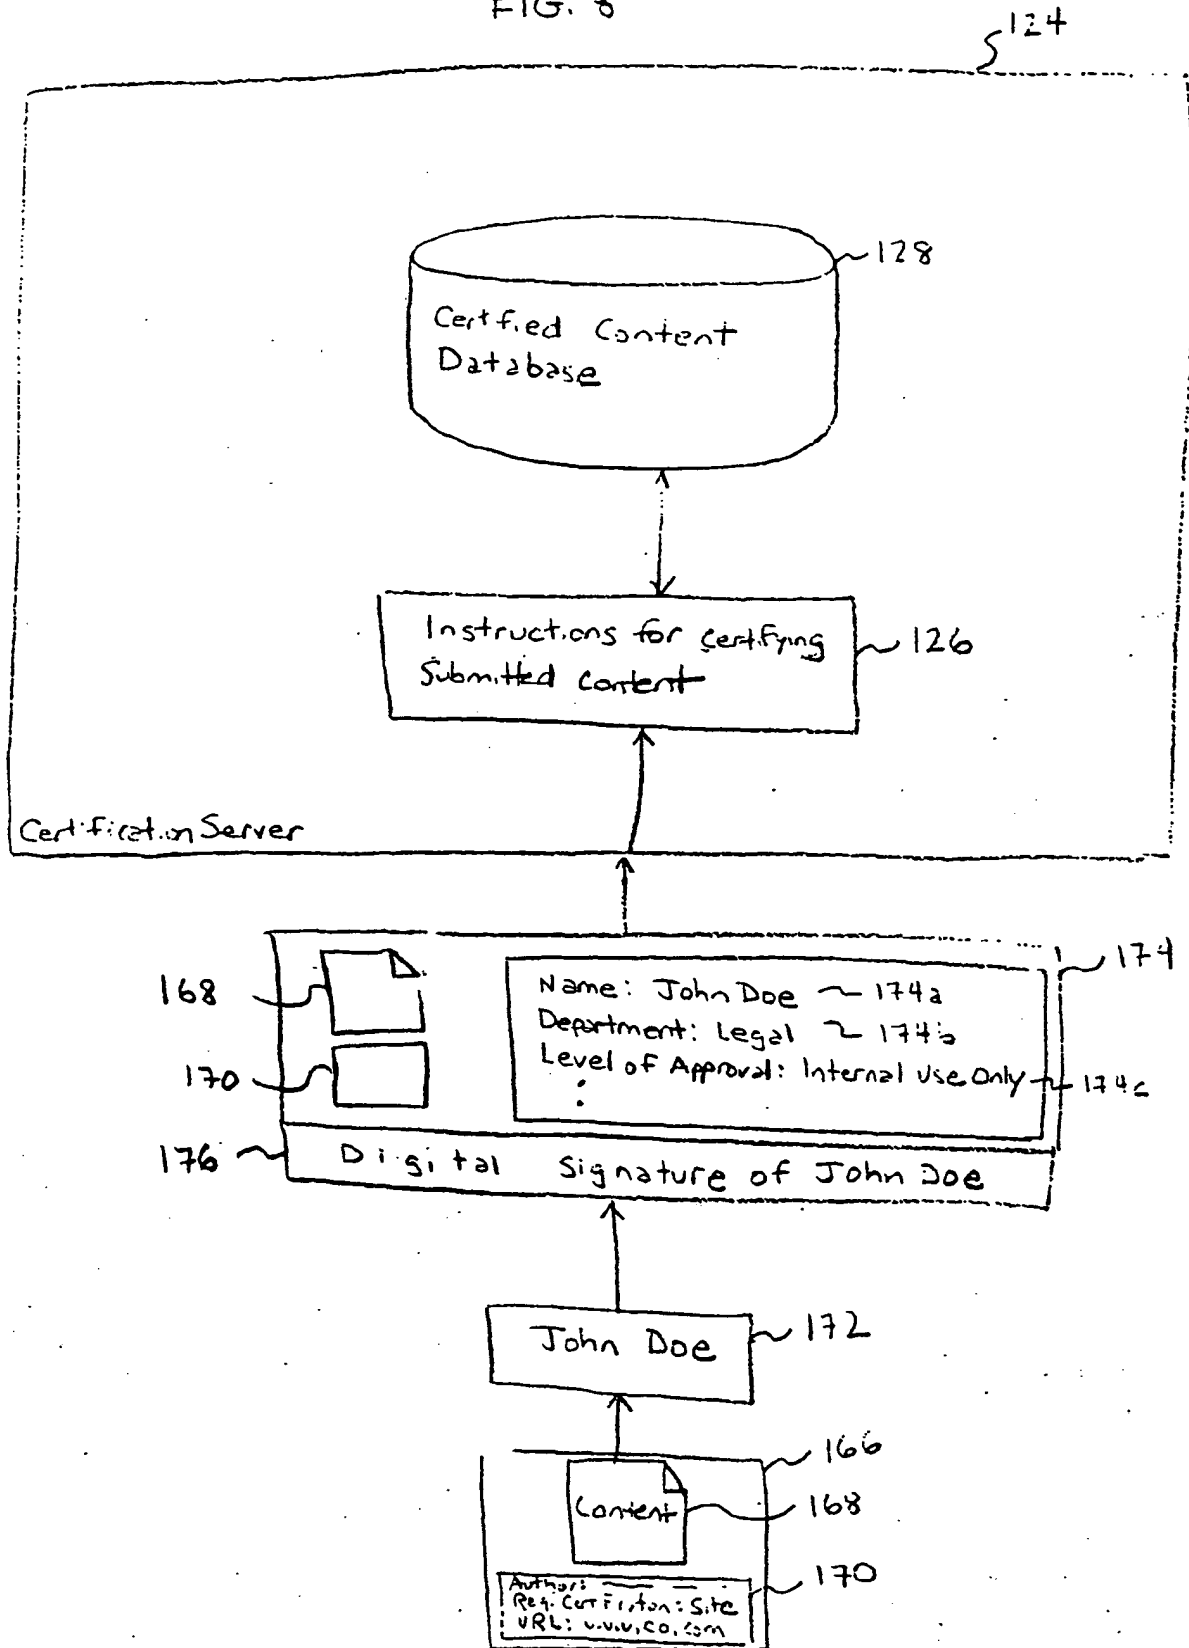 FIG. 8
124
128
Certified Content
Database
Instructions for certifying
Submitted Content
126
Certification Server
174
168
Name: John Doe 174a
Department: Legal 174b
170
Level of Approval: Internal Use Only 174c
176
Digital Signature of John Doe
John Doe
172
166
Content
168
170
Author:
Req. Certification: Site
URL: w.w.w.co.com